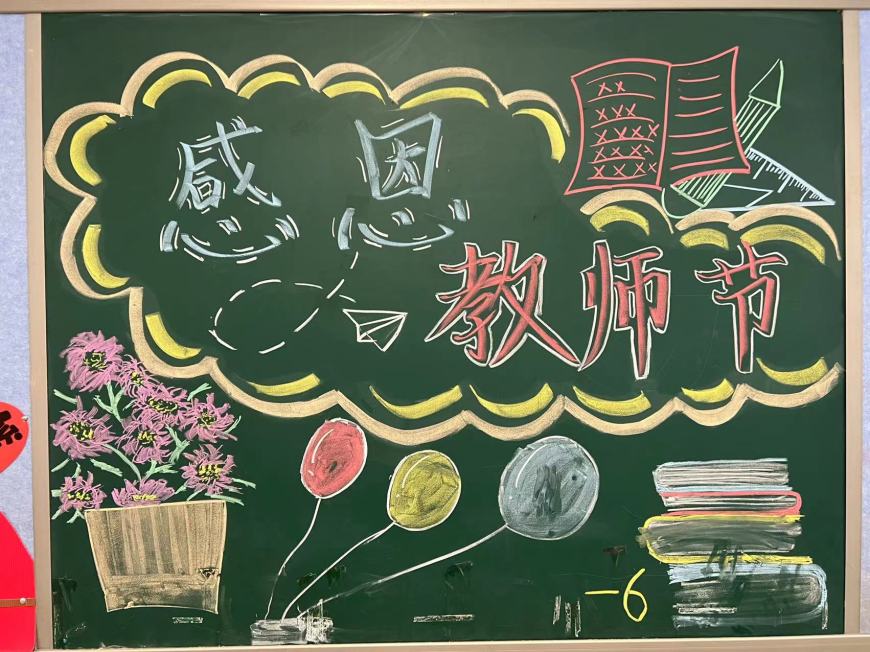 感恩
教师节
-6